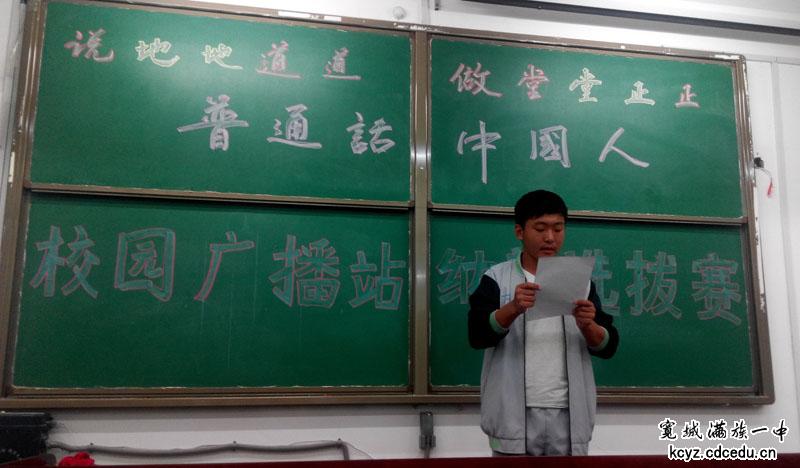 说地地道道
普通話
做堂堂正正
中國人
校园广播站 纳 选拔赛
寬城满族一中
kcyz.cdcedu.cn